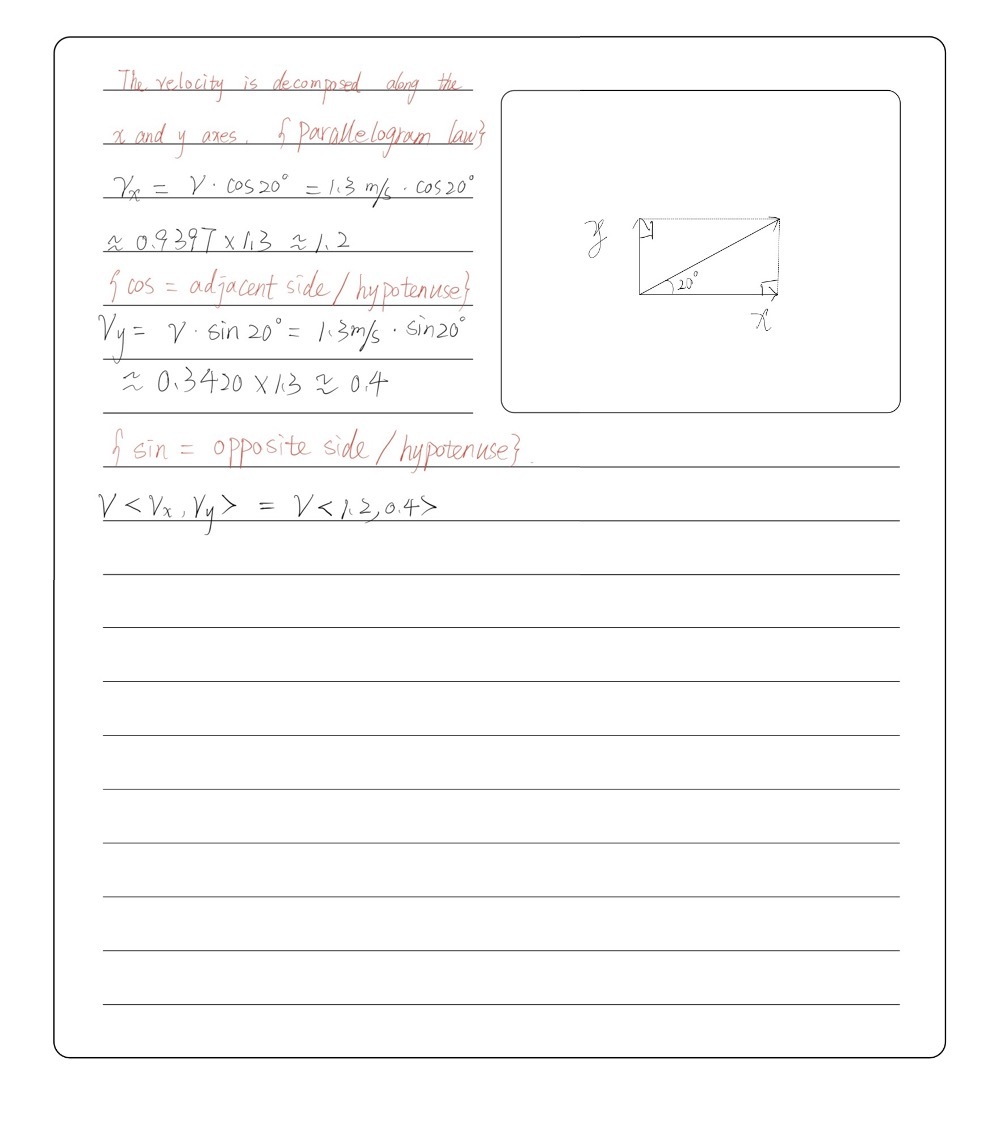 The velocity is decomposed along the
x and y axes. {parallelogram law}
Vx = V · cos20° = 1.3 m/s · cos20°
≈ 0.9397 × 1.3 ≈ 1.2
{cos = adjacent side / hypotenuse}
Vy = V · sin 20° = 1.3m/s · sin20°
≈ 0.3420 × 1.3 ≈ 0.4
{sin = opposite side / hypotenuse}.
V <Vx, Vy> = V <1.2, 0.4>
y
20°
x